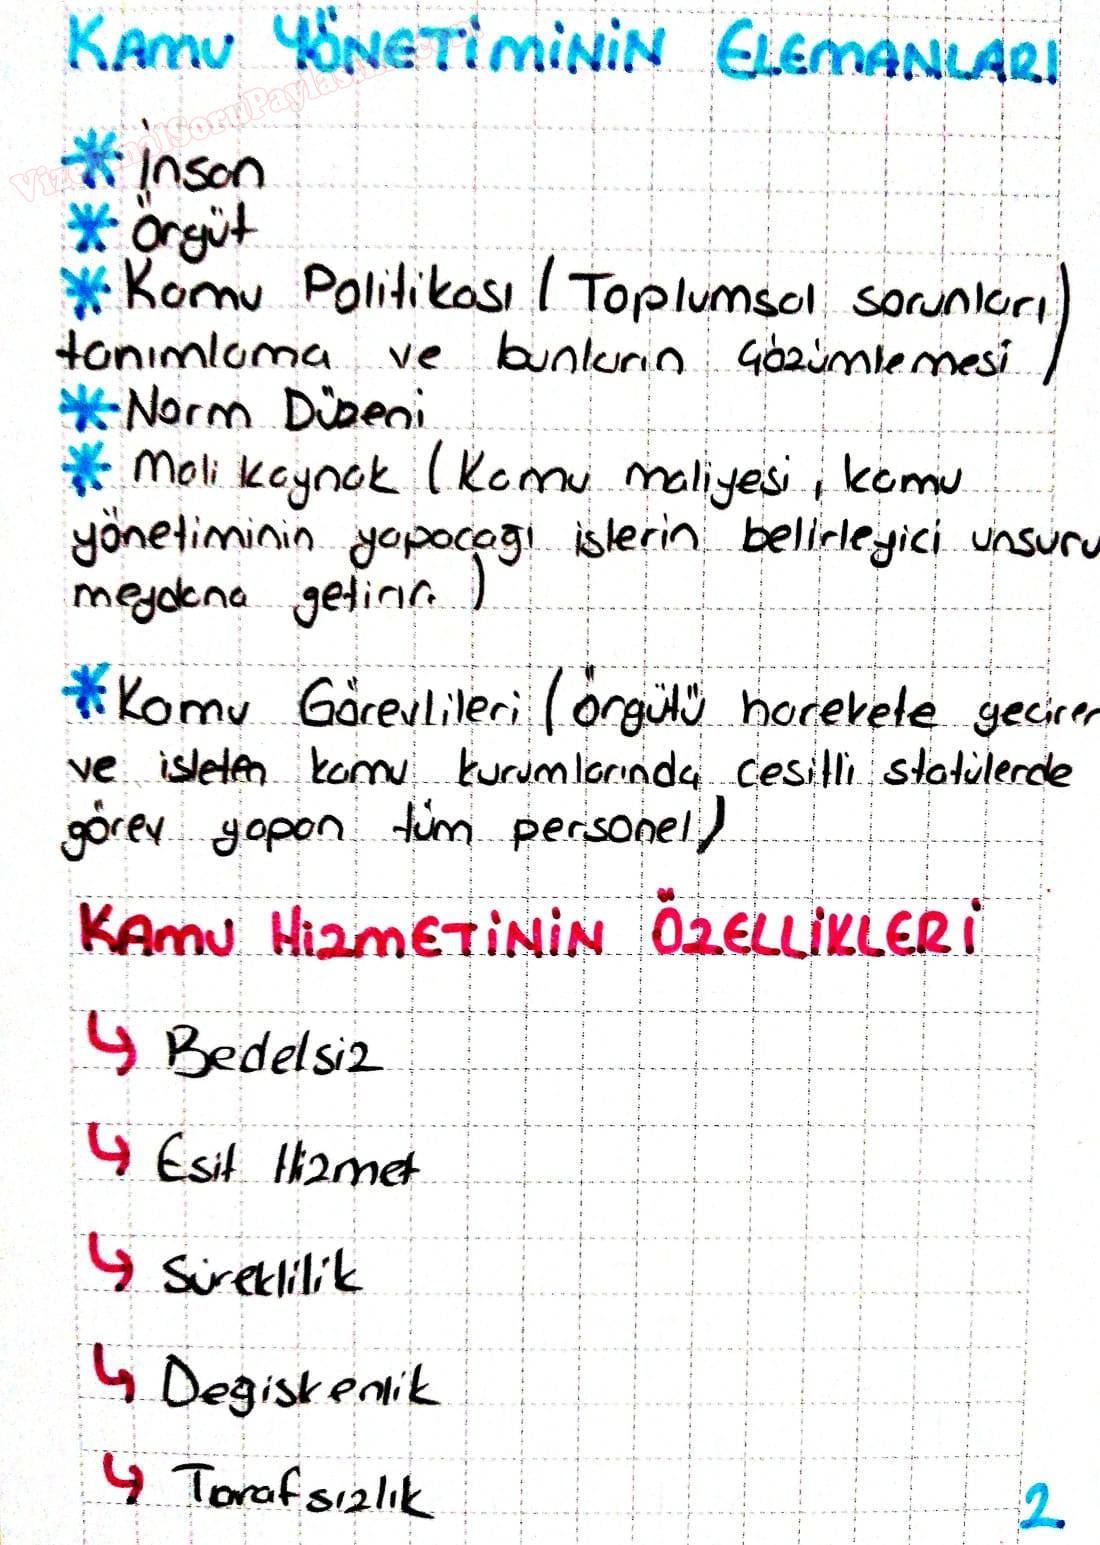 KAMU YÖNETİMİNİN ELEMANLARI
VizeFinalSoruPaylasimi.com
* İnsan
* Örgüt
* Kamu Politikası (Toplumsal sorunları
tanımlama ve bunların çözümlemesi)
* Norm Düzeni
* Mali kaynak (Kamu maliyesi, kamu
yönetiminin yapacağı işlerin belirleyici unsuru
meydana getirir.)
* Kamu Görevlileri (örgütü harekete geciren
ve isleten kamu kurumlarında cesitli statülerde
görev yapan tüm personel)
KAMU HİZMETİNİN ÖZELLİKLERİ
↳ Bedelsiz
↳ Esit Hizmet
↳ Süreklilik
↳ Degiskenlik
↳ Tarafsızlık
2